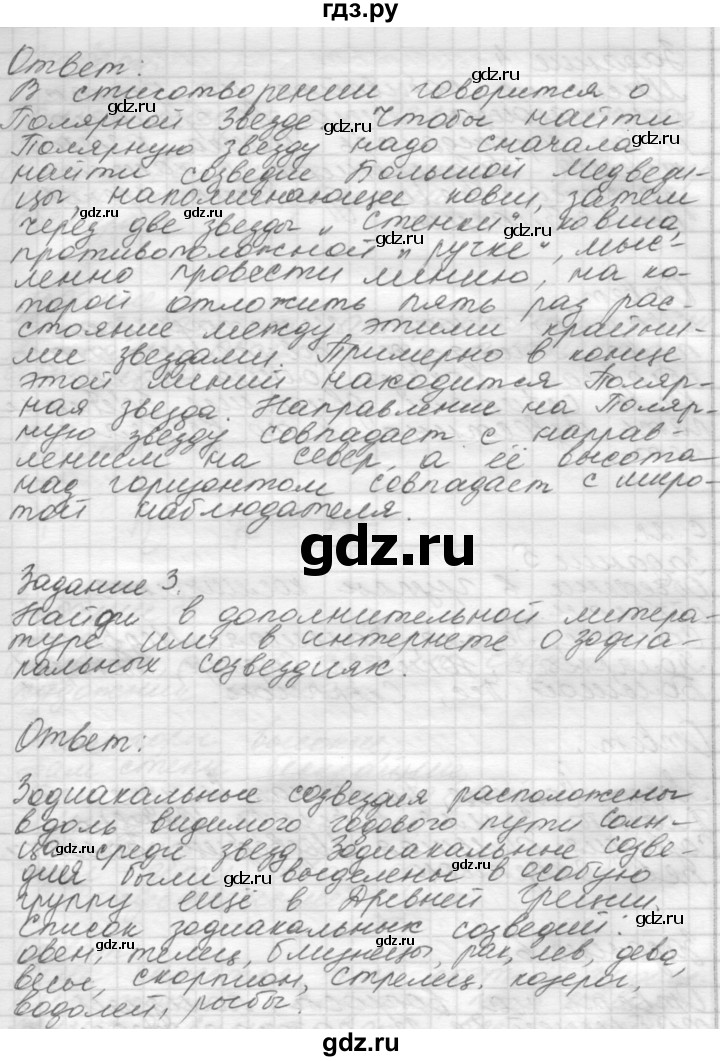 гдз.ру
Ответ:
В стихотворении говорится о
Полярной Звезде. Чтобы найти
Полярную звезду надо сначала
найти созведие Большой Медведи-
цы, напоминающее ковш, затем
через две звезды „стенки" ковша,
противоположной „ручке", мыс-
ленно провести линию, на ко-
торой отложить пять раз рас-
стояние между этими крайни-
ми звездами. Примерно в конце
этой линий находится Поляр-
ная звезда. Направление на Поляр-
ную звезду совпадает с направ-
лением на север, а её высота
над горизонтом совпадает с широ-
той наблюдателя.
gdz.ru
Задание 3.
Найди в дополнительной литера-
туре или в интернете о зодиа-
кальных созвездиях.
Ответ:
Зодиакальные созвездия расположены
вдоль видимого годового пути Солн-
ца среди звезд. Зодиакальные созве-
дия были выделены в особую
группу ещё в Древней Греции.
Список зодиакальных созведий:
овен, телец, близнецы, рак, лев, дева,
весы, скорпион, стрелец, козерог,
водолей, рыбы.
gdz.ru